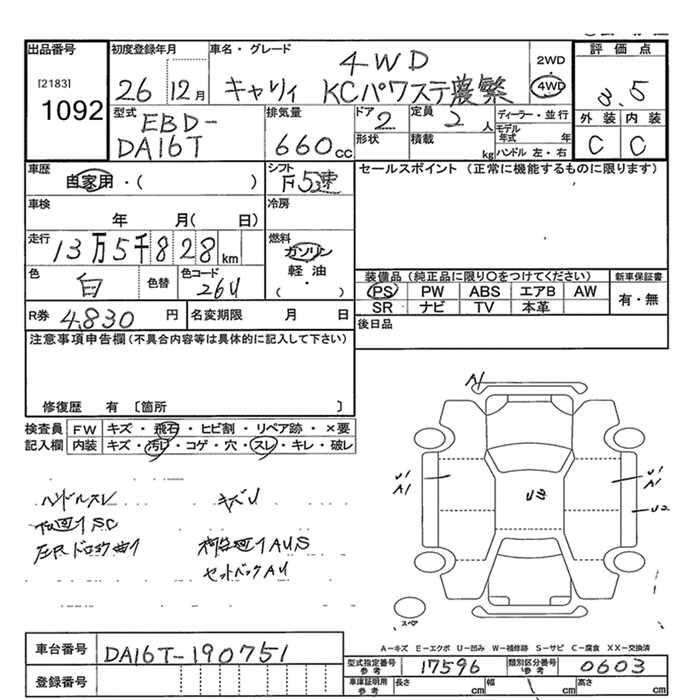 出品番号 初度登録年月 車名・グレード 4WD 2WD 評価点
[2183] 26 12月 キャリィ KCパワステ農繁 4WD 3.5
1092
型式 EBD- 排気量 ドア 定員 ディーラー・並行 外装 内装
DA16T 660cc 2 2人 モデル年式 年 C C
形状 積載 kg ハンドル 左・右
車歴 自家用・( ) シフト F5速 セールスポイント (正常に機能するものに限ります)
車検 年 月( 日) 冷房
走行 13万5千828km 燃料 ガソリン
軽油
( )
色 白 色替 色コード 26U 装備品 (純正品に限り〇をつけてください) 新車保証書
PS PW ABS エアB AW 有・無
SR ナビ TV 本革
R券 4,830円 名変期限 月 日 後日品
注意事項申告欄(不具合内容等は具体的に記入して下さい)
修復歴 有 〔箇所 〕
検査員 FW キズ・飛石・ヒビ割・リペア跡・×要
記入欄 内装 キズ・汚レ・コゲ・穴・スレ・キレ・破レ
A1
U1
A1
U3
U1
A1
U2
ハンドルスレ キズU
SC
AUS
AU
スペア
A-キズ E-エクボ U-凹み W-補修跡 S-サビ C-腐食 XX-交換済
車台番号 DA16T-190751
型式指定番号 参考 17596 類別区分番号 参考 0603
登録番号 車庫証明用 参考 長さ cm 幅 cm 高さ cm